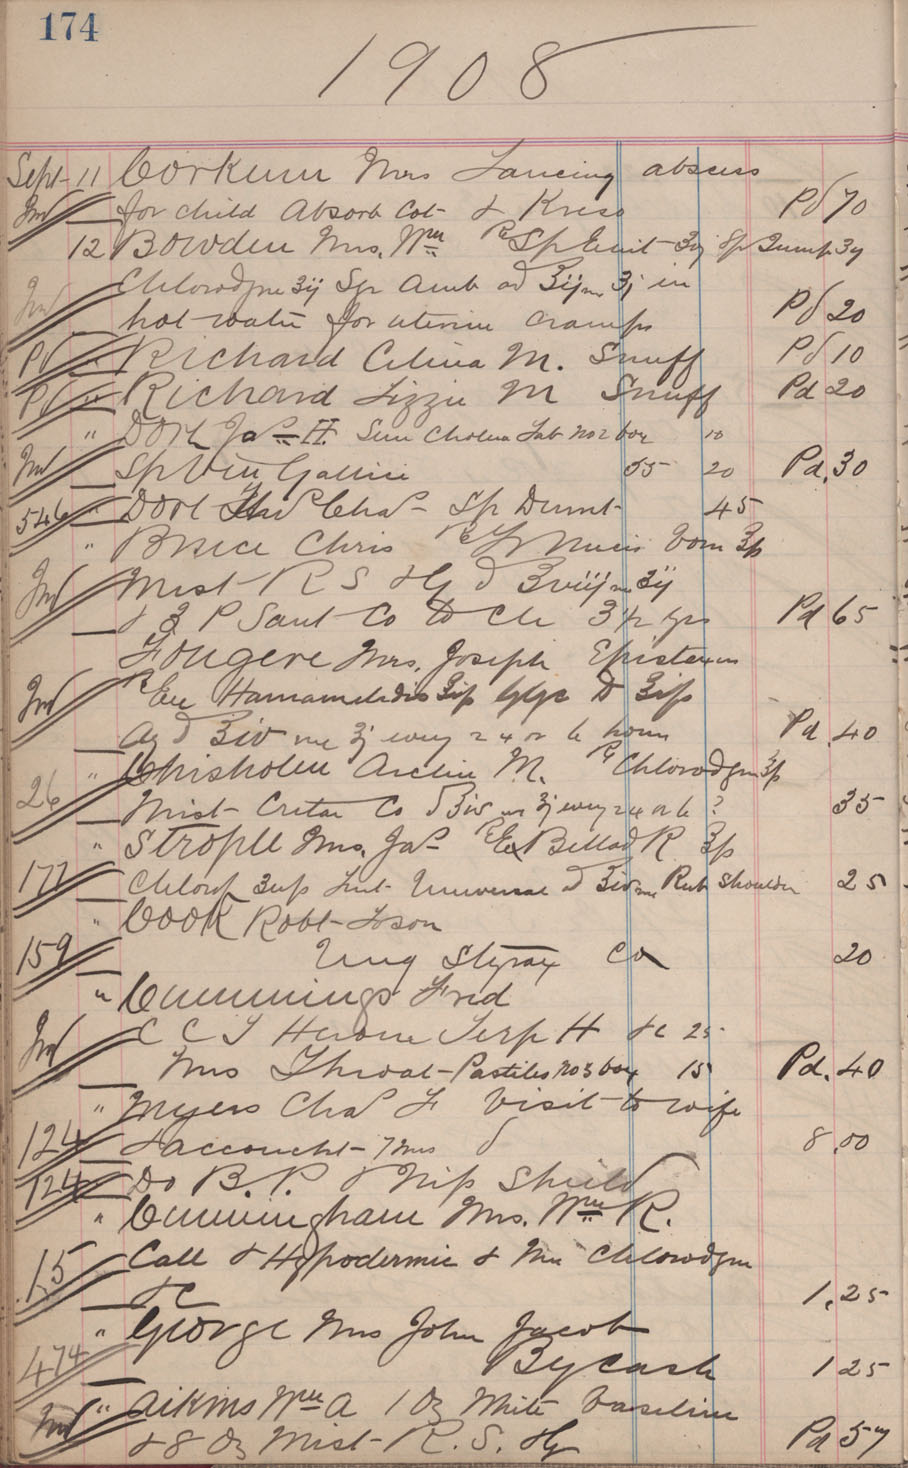 174
1908
Sept 11 Corkum Mrs Lancing abscess
Ind for child Absorb Cot & Kreso Pd 70
12 Bowden Mrs. Wm Rx Sp
Chlorodyne ʒij Spr Amb ad ℥ij ʒj in
hot water for uterine cramps Pd 20
Pd " Richard Celina M. Snuff Pd 10
Pd " Richard Lizzie M Snuff Pd 20
" Dort Jas H. Sun Cholera Tab No 2 box 10
Ind Sp Vin Gallici 55 20 Pd. 30
546 " Dort Chas Sp 45
" Bruce Chris Rx Tr Nucis Vom
Ind Mist R S & Hy ad ʒij
& 3 P Sant Co Pd 65
Fougere Mrs. Joseph Epistaxis
Ind Rx Ext Hamamelidis Glyc
Aq ad ℥iv ʒj every 2 4 or 6 hours Pd. 40
26 " Chisholm Archie M. Rx Chlorodyne
Mist Cretae Co ad ℥iv ʒj every 2 4 or 6 ? 35
" Stropll Mrs. Jas Rx Ex Bellad R
177 Chlorof Lint Universal ad ℥iv Rub Shoulder 25
" Cook Robt
159 Ung Styrax Co 20
" Cummings Fred
Ind C C T Heroin Terp H &c 25
Mrs Throat Pastiles No 3 box 15 Pd. 40
" Myers Chas F Visit to wife
124 & accoucht 7 Mrs 8.00
124 Do B. P. & Nip Shield
" Cunningham Mrs. Wm R.
15 Call & Hypodermic & Chlorodyne
&c 1.25
" George Mrs John Jacob
474 By cash 1 25
Ind " Aikins Wm A 1 Oz White Vaseline
& 8 Oz Mist R. S. Hy Pd 57